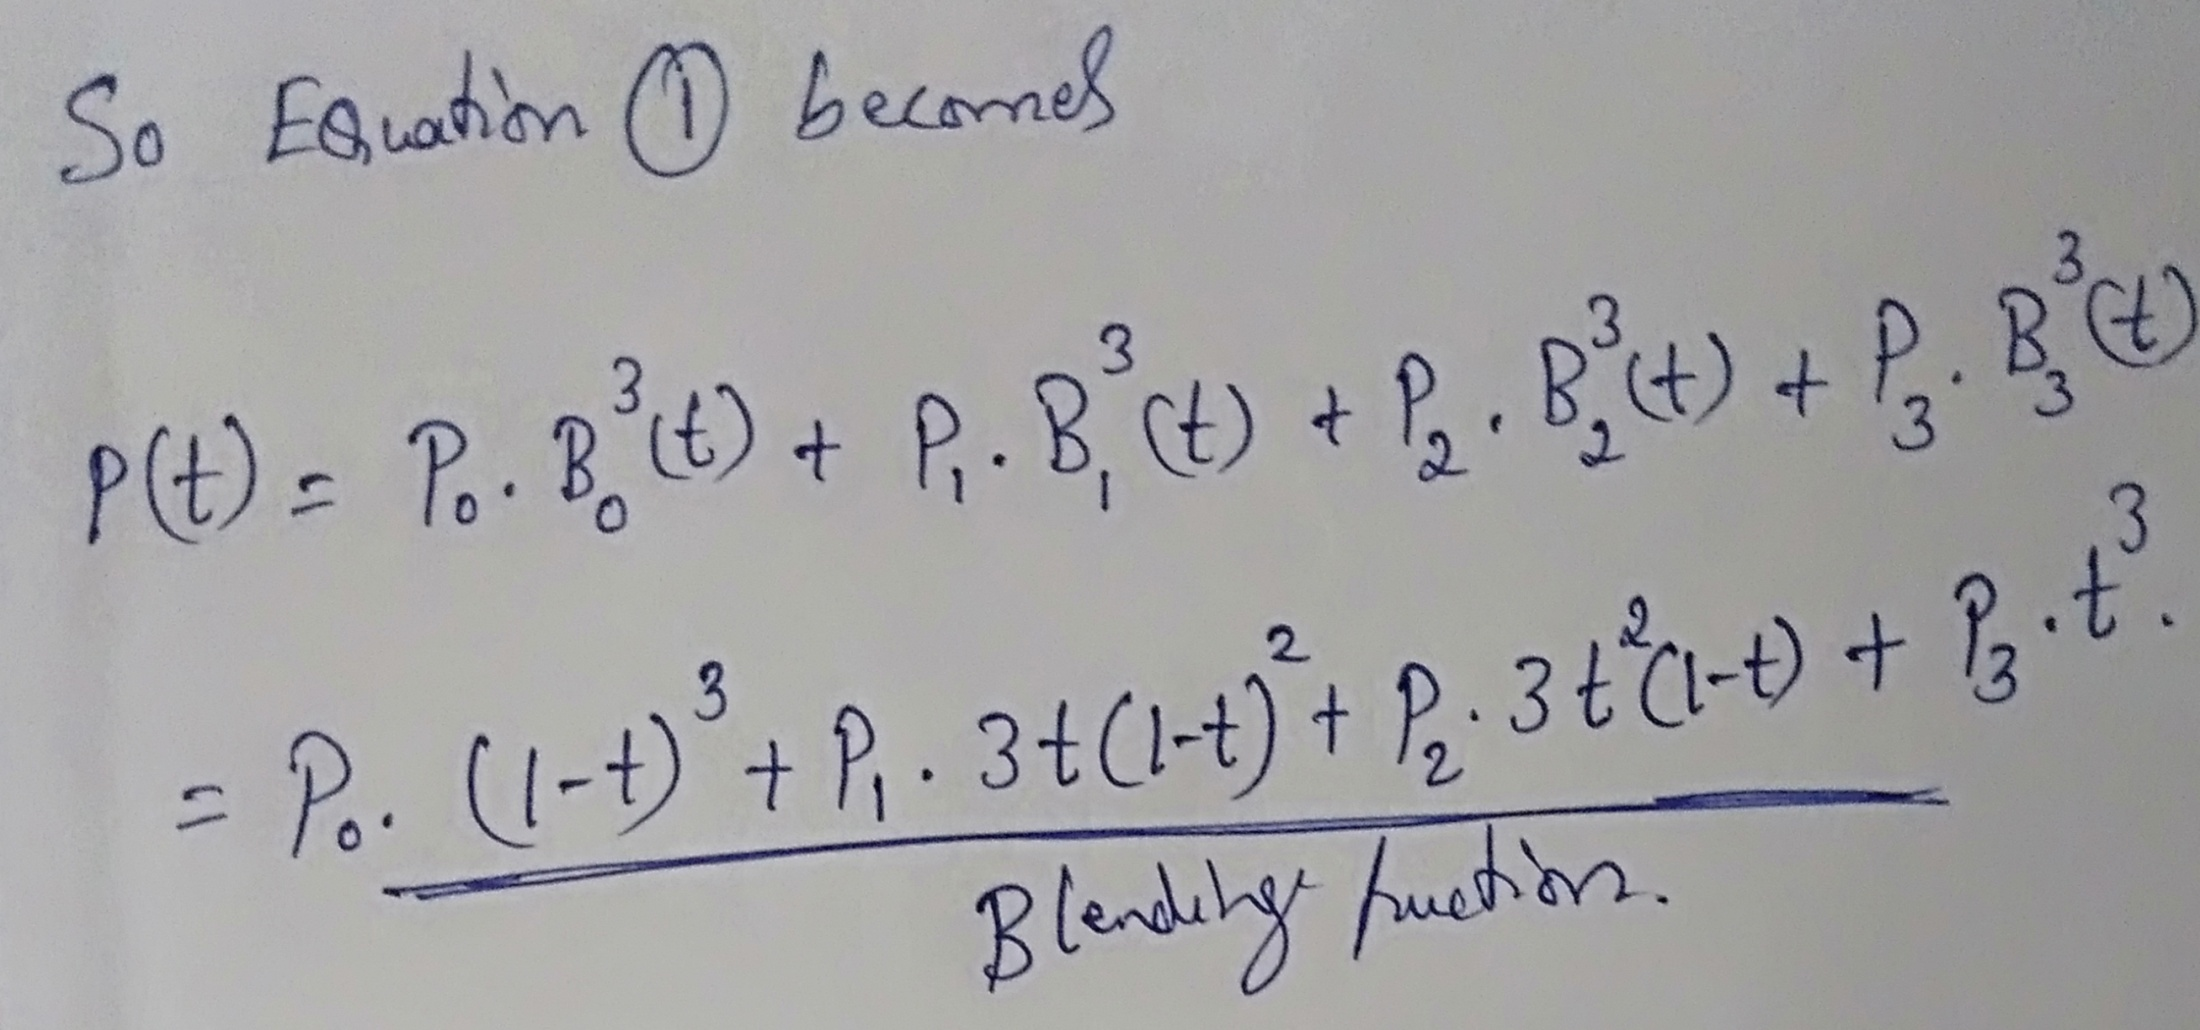 So Equation ① becomes
P(t) = P₀ . B₀³(t) + P₁ . B₁³(t) + P₂ . B₂³(t) + P₃ . B₃³(t)
= P₀ . (1-t)³ + P₁ . 3t(1-t)² + P₂ . 3t²(1-t) + P₃ . t³ .
Blending function.